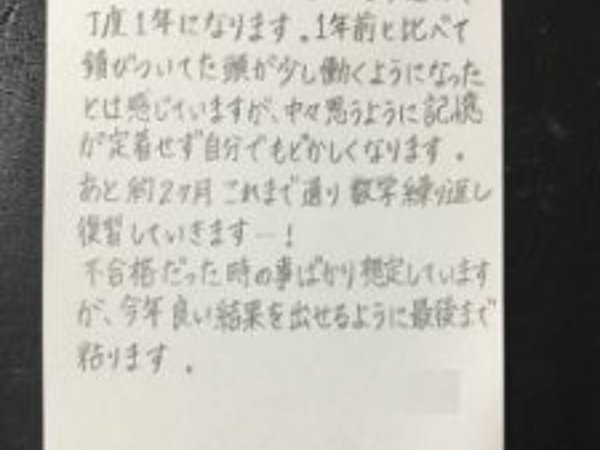 丁度1年になります。1年前と比べて
錆びついてた頭が少し働くようになった
とは感じていますが、中々思うように記憶
が定着せず自分でもどかしくなります。
あと約2ヶ月これまで通り数字繰り返し
復習していきます…!
不合格だった時の事ばかり想定しています
が、今年良い結果を出せるように最後まで
粘ります。